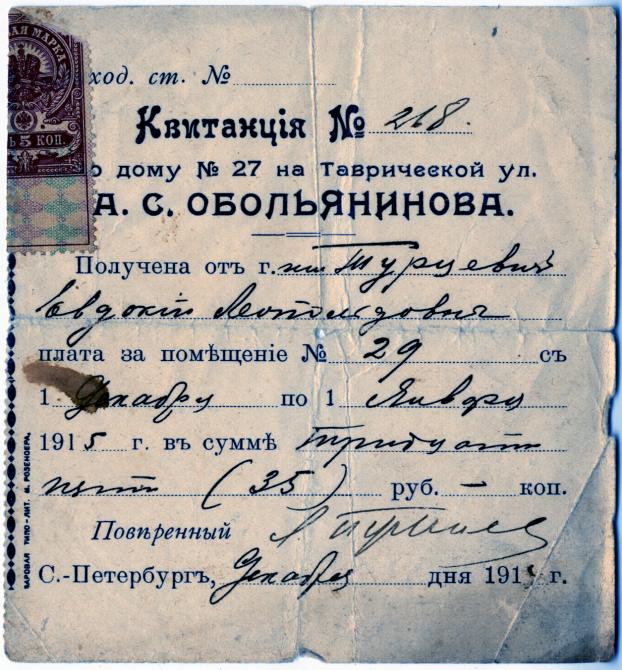 АЯ МАРКА
5 КОП.
ход. ст. №
Квитанція № 218.
о дому № 27 на Таврической ул.
А. С. ОБОЛЬЯНИНОВА.
Получена отъ г.
Евдокіи Леопольдовны
плата за помѣщеніе № 29 съ
1 Декабря по 1 Января
1915 г. въ суммѣ тридцати
пяти (35) руб. — коп.
Повѣренный
С.-Петербургъ, Декабря дня 191 г.
ПАРОВАЯ ТИПО-ЛИТ. М. РОЗЕНОЕРА.